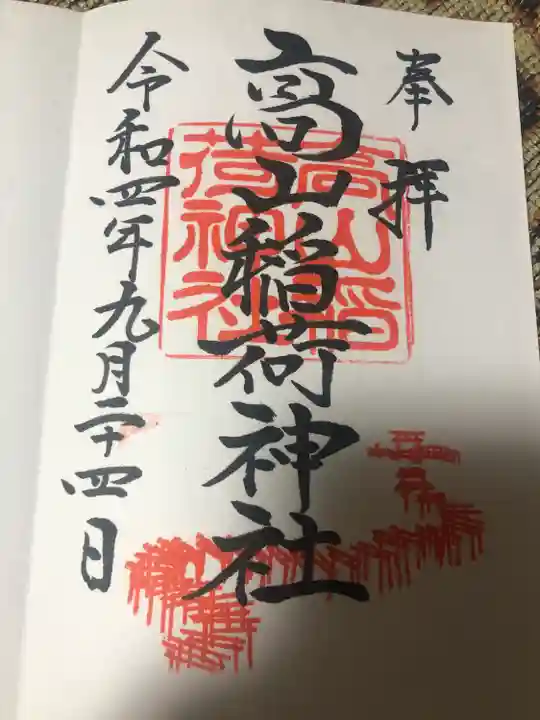 奉拝
高山稲荷神社
高山稲荷神社
令和四年九月二十四日